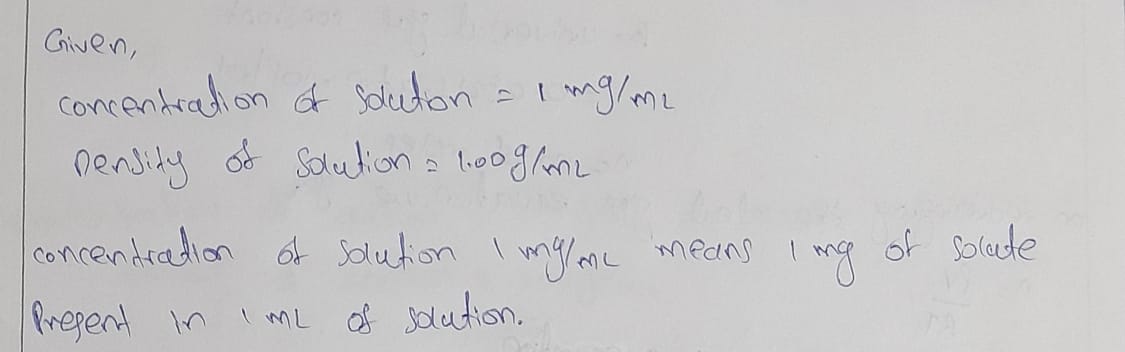 Given,
concentration of solution = 1 mg/mL
Density of solution = 1.00 g/mL
concentration of solution 1 mg/mL means 1 mg of solute
Present in 1 mL of solution.